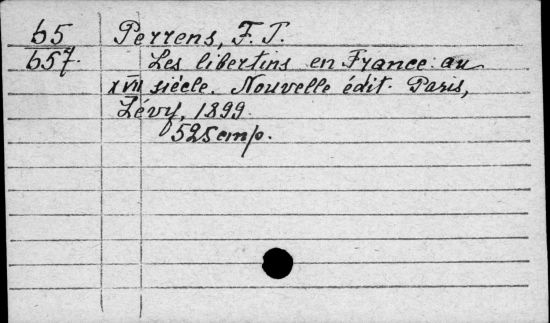 б5 Perrens, F. T.
б57. Les libertins en France au
XVII siècle. Nouvelle édit. Paris,
Lévy, 1899.
525 стр.